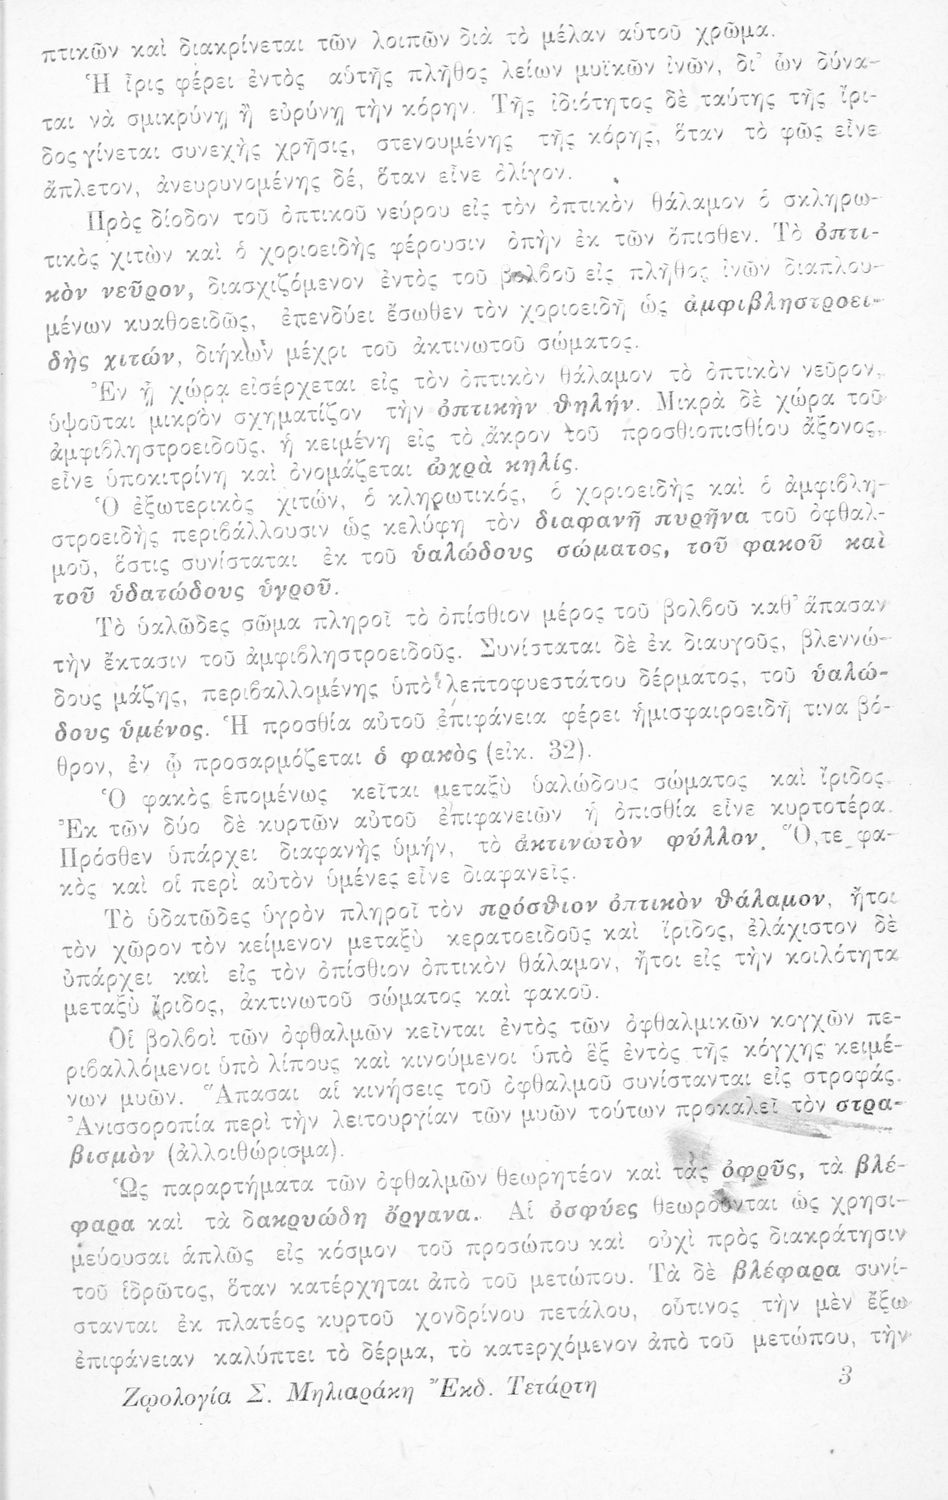 πτικῶν καὶ διακρίνεται τῶν λοιπῶν διὰ τὸ μέλαν αὑτοῦ χρῶμα.
Ἡ ἶρις φέρει ἐντὸς αὑτῆς πλῆθος λείων μυϊκῶν ἰνῶν, δι' ὧν δύνα-
ται νὰ σμικρύνῃ ἢ εὐρύνῃ τὴν κόρην. Τῆς ἰδιότητος δὲ ταύτης τῆς ἴρι-
δος γίνεται συνεχὴς χρῆσις, στενουμένης τῆς κόρης, ὅταν τὸ φῶς εἶνε
ἄπλετον, ἀνευρυνομένης δέ, ὅταν εἶνε ὀλίγον.
Πρὸς δίοδον τοῦ ὀπτικοῦ νεύρου εἰς τὸν ὀπτικὸν θάλαμον ὁ σκληρω-
τικὸς χιτὼν καὶ ὁ χοριοειδὴς φέρουσιν ὀπὴν ἐκ τῶν ὄπισθεν. Τὸ ὀπτι-
κὸν νεῦρον, διασχιζόμενον ἐντὸς τοῦ βολβοῦ εἰς πλῆθος ἰνῶν διαπλου-
μένων κυαθοειδῶς, ἐπενδύει ἔσωθεν τὸν χοριοειδῆ ὡς ἀμφιβληστροει-
δὴς χιτών, διήκων μέχρι τοῦ ἀκτινωτοῦ σώματος.
Ἐν ᾗ χώρᾳ εἰσέρχεται εἰς τὸν ὀπτικὸν θάλαμον τὸ ὀπτικὸν νεῦρον,
ὑψοῦται μικρὸν σχηματίζον τὴν ὀπτικὴν θηλήν. Μικρὰ δὲ χώρα τοῦ
ἀμφιβληστροειδοῦς, ἡ κειμένη εἰς τὸ ἄκρον τοῦ προσθιοπισθίου ἄξονος,
εἶνε ὑποκιτρίνη καὶ ὀνομάζεται ὠχρὰ κηλίς.
Ὁ ἐξωτερικὸς χιτών, ὁ κληρωτικός, ὁ χοριοειδὴς καὶ ὁ ἀμφιβλη-
στροειδὴς περιβάλλουσιν ὡς κελύφη τὸν διαφανῆ πυρῆνα τοῦ ὀφθαλ-
μοῦ, ὅστις συνίσταται ἐκ τοῦ ὑαλώδους σώματος, τοῦ φακοῦ καὶ
τοῦ ὑδατώδους ὑγροῦ.
Τὸ ὑαλῶδες σῶμα πληροῖ τὸ ὀπίσθιον μέρος τοῦ βολβοῦ καθ' ἅπασαν
τὴν ἔκτασιν τοῦ ἀμφιβληστροειδοῦς. Συνίσταται δὲ ἐκ διαυγοῦς, βλεννώ-
δους μάζης, περιβαλλομένης ὑπὸ λεπτοφυεστάτου δέρματος, τοῦ ὑαλώ-
δους ὑμένος. Ἡ προσθία αὐτοῦ ἐπιφάνεια φέρει ἡμισφαιροειδῆ τινα βό-
θρον, ἐν ᾧ προσαρμόζεται ὁ φακὸς (εἰκ. 32).
Ὁ φακὸς ἑπομένως κεῖται μεταξὺ ὑαλώδους σώματος καὶ ἴριδος.
Ἐκ τῶν δύο δὲ κυρτῶν αὐτοῦ ἐπιφανειῶν ἡ ὀπισθία εἶνε κυρτοτέρα.
Πρόσθεν ὑπάρχει διαφανὴς ὑμήν, τὸ ἀκτινωτὸν φύλλον. Ὅ,τε φα-
κὸς καὶ οἱ περὶ αὐτὸν ὑμένες εἶνε διαφανεῖς.
Τὸ ὑδατῶδες ὑγρὸν πληροῖ τὸν πρόσθιον ὀπτικὸν θάλαμον, ἤτοι
τὸν χῶρον τὸν κείμενον μεταξὺ κερατοειδοῦς καὶ ἴριδος, ἐλάχιστον δὲ
ὑπάρχει καὶ εἰς τὸν ὀπίσθιον ὀπτικὸν θάλαμον, ἤτοι εἰς τὴν κοιλότητα
μεταξὺ ἴριδος, ἀκτινωτοῦ σώματος καὶ φακοῦ.
Οἱ βολβοὶ τῶν ὀφθαλμῶν κεῖνται ἐντὸς τῶν ὀφθαλμικῶν κογχῶν πε-
ριβαλλόμενοι ὑπὸ λίπους καὶ κινούμενοι ὑπὸ ἓξ ἐντὸς τῆς κόγχης κειμέ-
νων μυῶν. Ἅπασαι αἱ κινήσεις τοῦ ὀφθαλμοῦ συνίστανται εἰς στροφάς.
Ἀνισσοροπία περὶ τὴν λειτουργίαν τῶν μυῶν τούτων προκαλεῖ τὸν στρα-
βισμὸν (ἀλλοιθώρισμα).
Ὡς παραρτήματα τῶν ὀφθαλμῶν θεωρητέον καὶ τὰς ὀφρῦς, τὰ βλέ-
φαρα καὶ τὰ δακρυώδη ὄργανα. Αἱ ὀσφύες θεωροῦνται ὡς χρησι-
μεύουσαι ἁπλῶς εἰς κόσμον τοῦ προσώπου καὶ οὐχὶ πρὸς διακράτησιν
τοῦ ἱδρῶτος, ὅταν κατέρχηται ἀπὸ τοῦ μετώπου. Τὰ δὲ βλέφαρα συνί-
στανται ἐκ πλατέος κυρτοῦ χονδρίνου πετάλου, οὗτινος τὴν μὲν ἔξω
ἐπιφάνειαν καλύπτει τὸ δέρμα, τὸ κατερχόμενον ἀπὸ τοῦ μετώπου, τὴν
Ζῳολογία Σ. Μηλιαράκη Ἔκδ. Τετάρτη 3